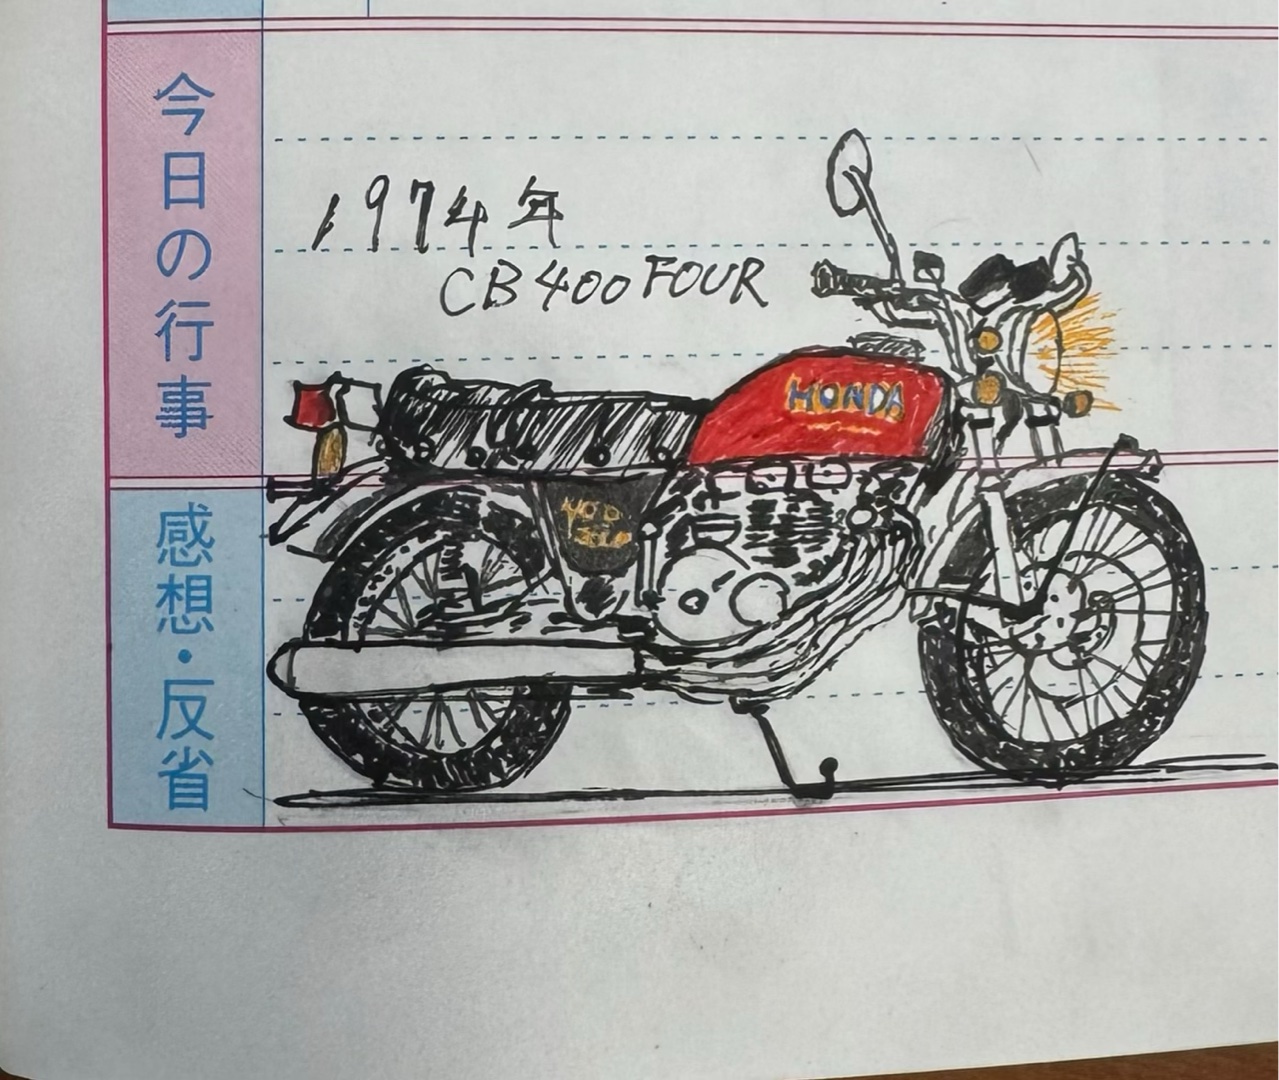 今日の行事
1974年
CB400FOUR
HONDA
400
感想・反省